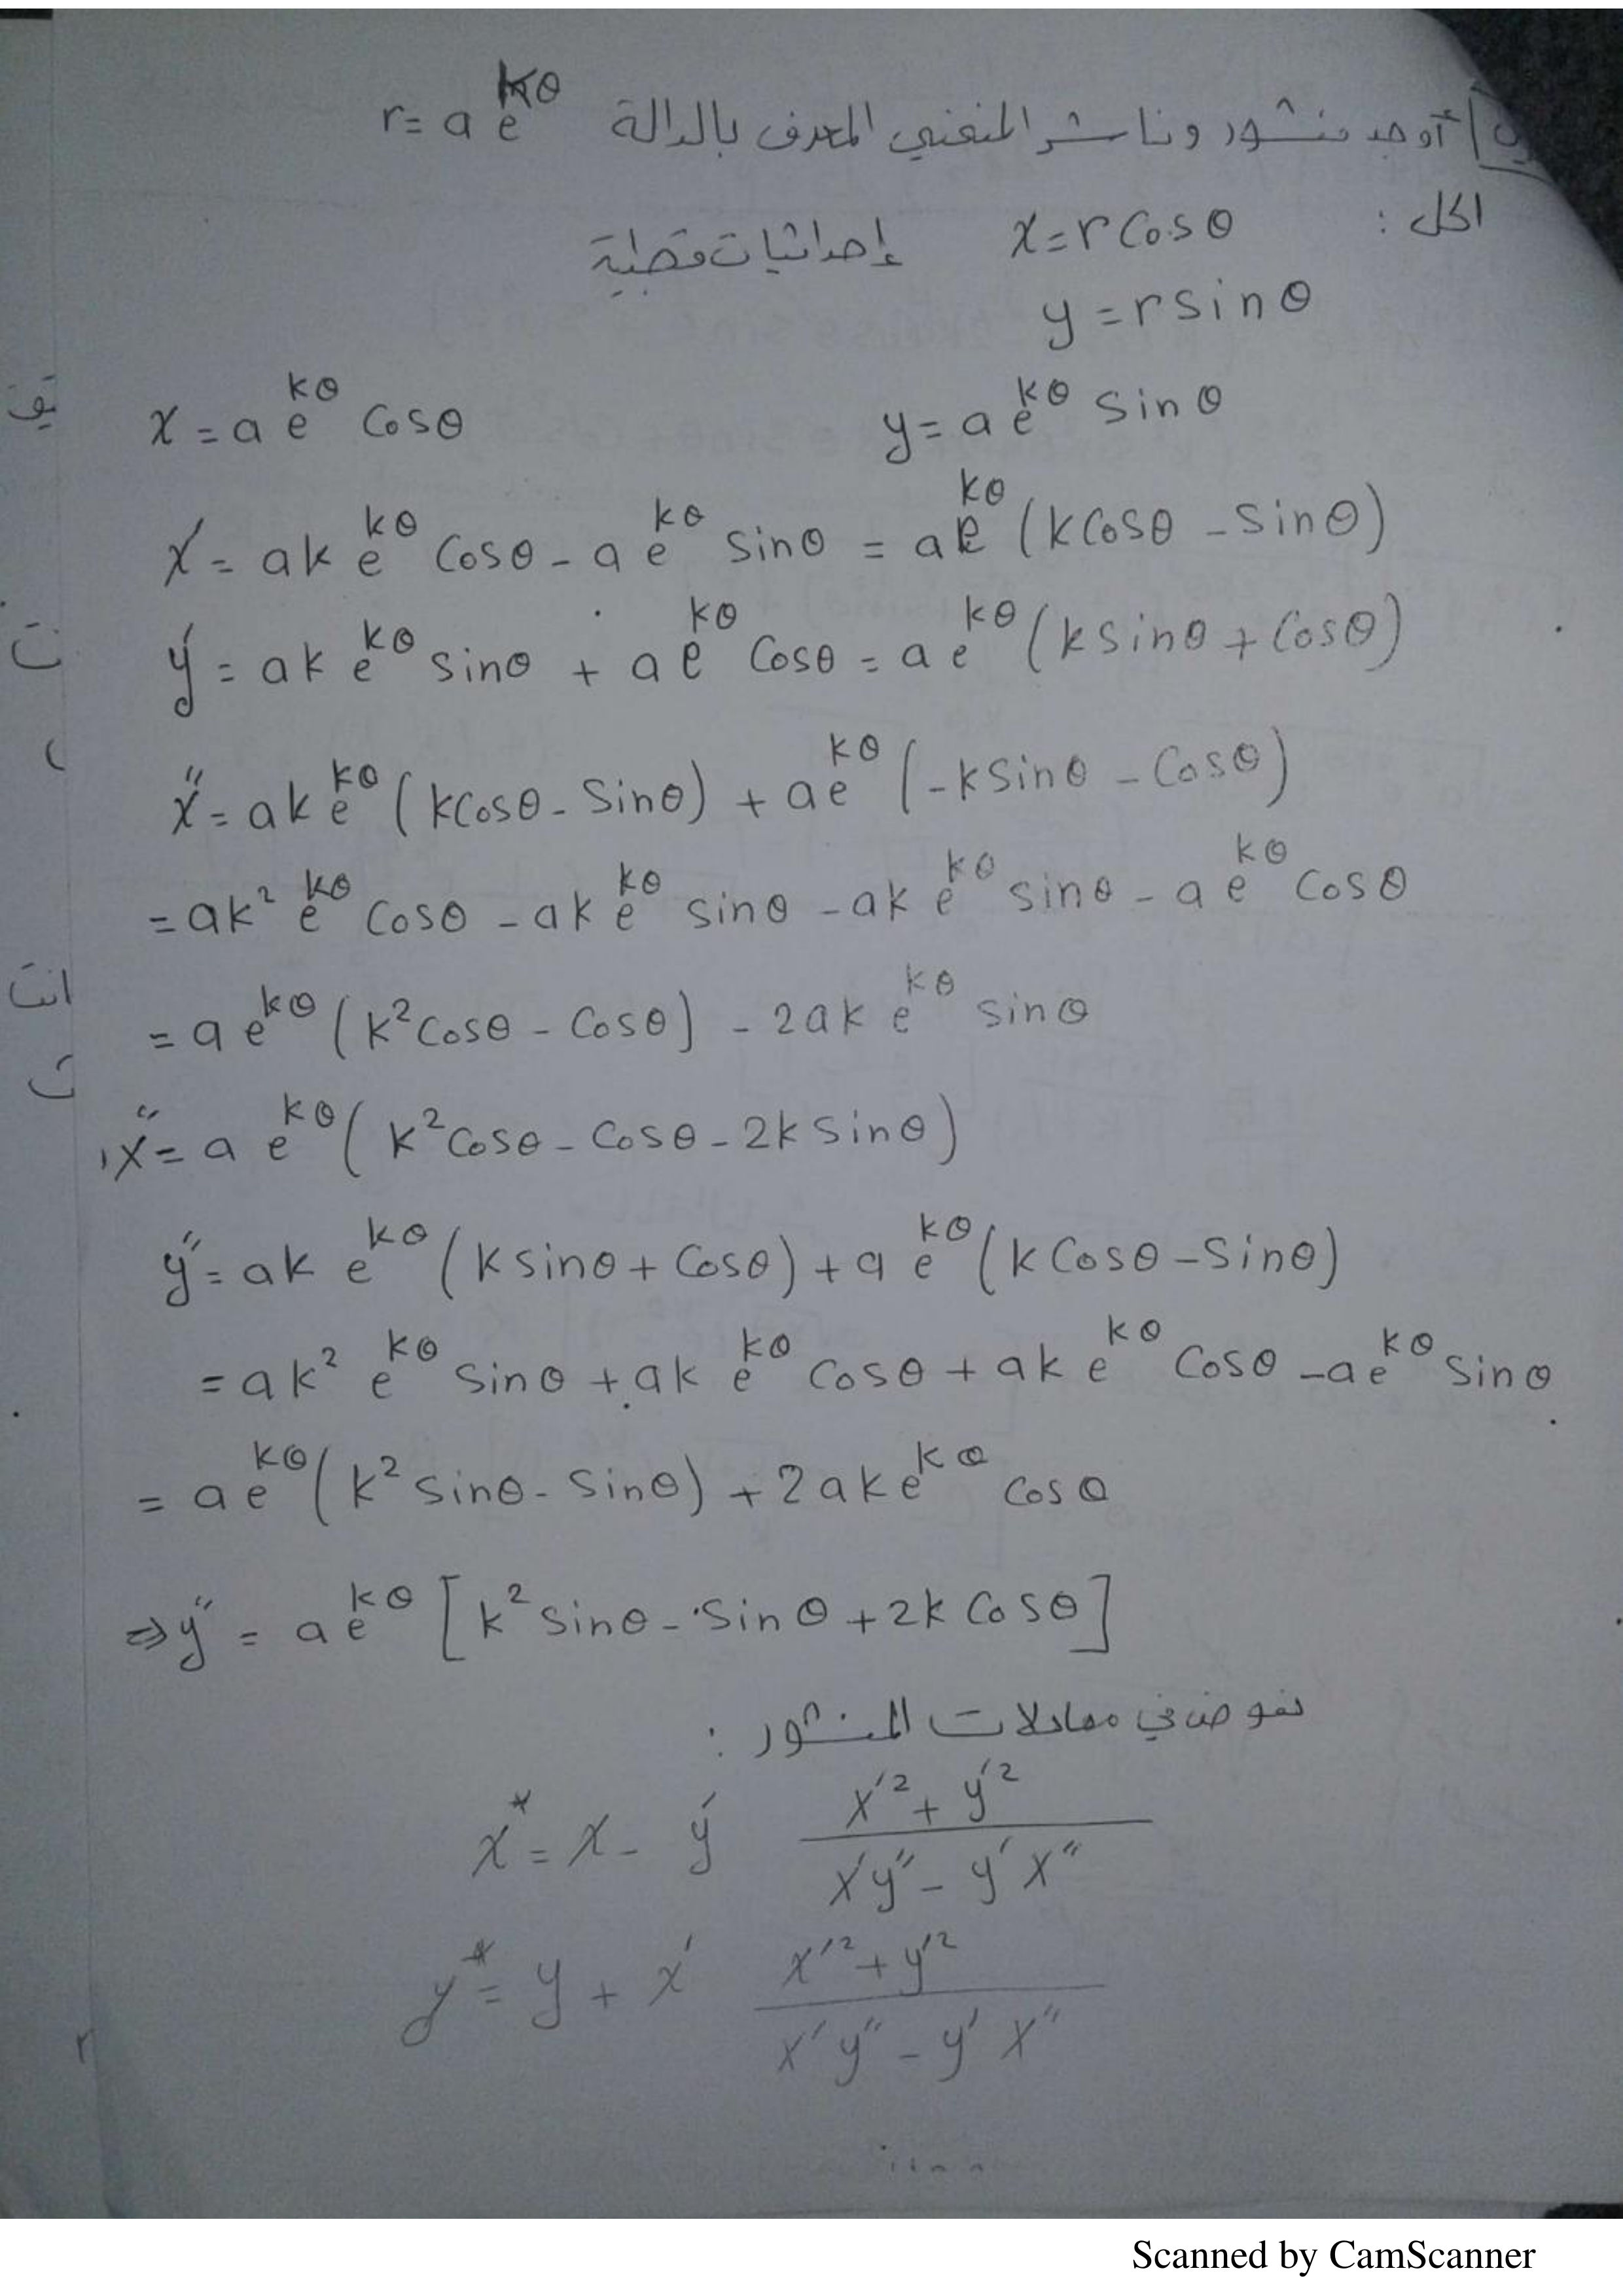 أوجد منشور وناشر المنحني المعرف بالدالة r = a e^{kθ}
الحل : x = r cosθ إحداثيات قطبية
y = r sinθ
x = a e^{kθ} cosθ y = a e^{kθ} sinθ
x' = ak e^{kθ} cosθ - a e^{kθ} sinθ = a e^{kθ} (k cosθ - sinθ)
y' = ak e^{kθ} sinθ + a e^{kθ} cosθ = a e^{kθ} (k sinθ + cosθ)
x'' = ak e^{kθ} (k cosθ - sinθ) + a e^{kθ} (-k sinθ - cosθ)
= ak² e^{kθ} cosθ - ak e^{kθ} sinθ - ak e^{kθ} sinθ - a e^{kθ} cosθ
= a e^{kθ} (k² cosθ - cosθ) - 2ak e^{kθ} sinθ
x'' = a e^{kθ} (k² cosθ - cosθ - 2k sinθ)
y'' = ak e^{kθ} (k sinθ + cosθ) + a e^{kθ} (k cosθ - sinθ)
= ak² e^{kθ} sinθ + ak e^{kθ} cosθ + ak e^{kθ} cosθ - a e^{kθ} sinθ
= a e^{kθ} (k² sinθ - sinθ) + 2ak e^{kθ} cosθ
⇒ y'' = a e^{kθ} [k² sinθ - sinθ + 2k cosθ]
نعوض في معادلات المنشور :
x* = x - y' (x'² + y'²) / (x'y'' - y'x'')
y* = y + x' (x'² + y'²) / (x'y'' - y'x'')
Scanned by CamScanner